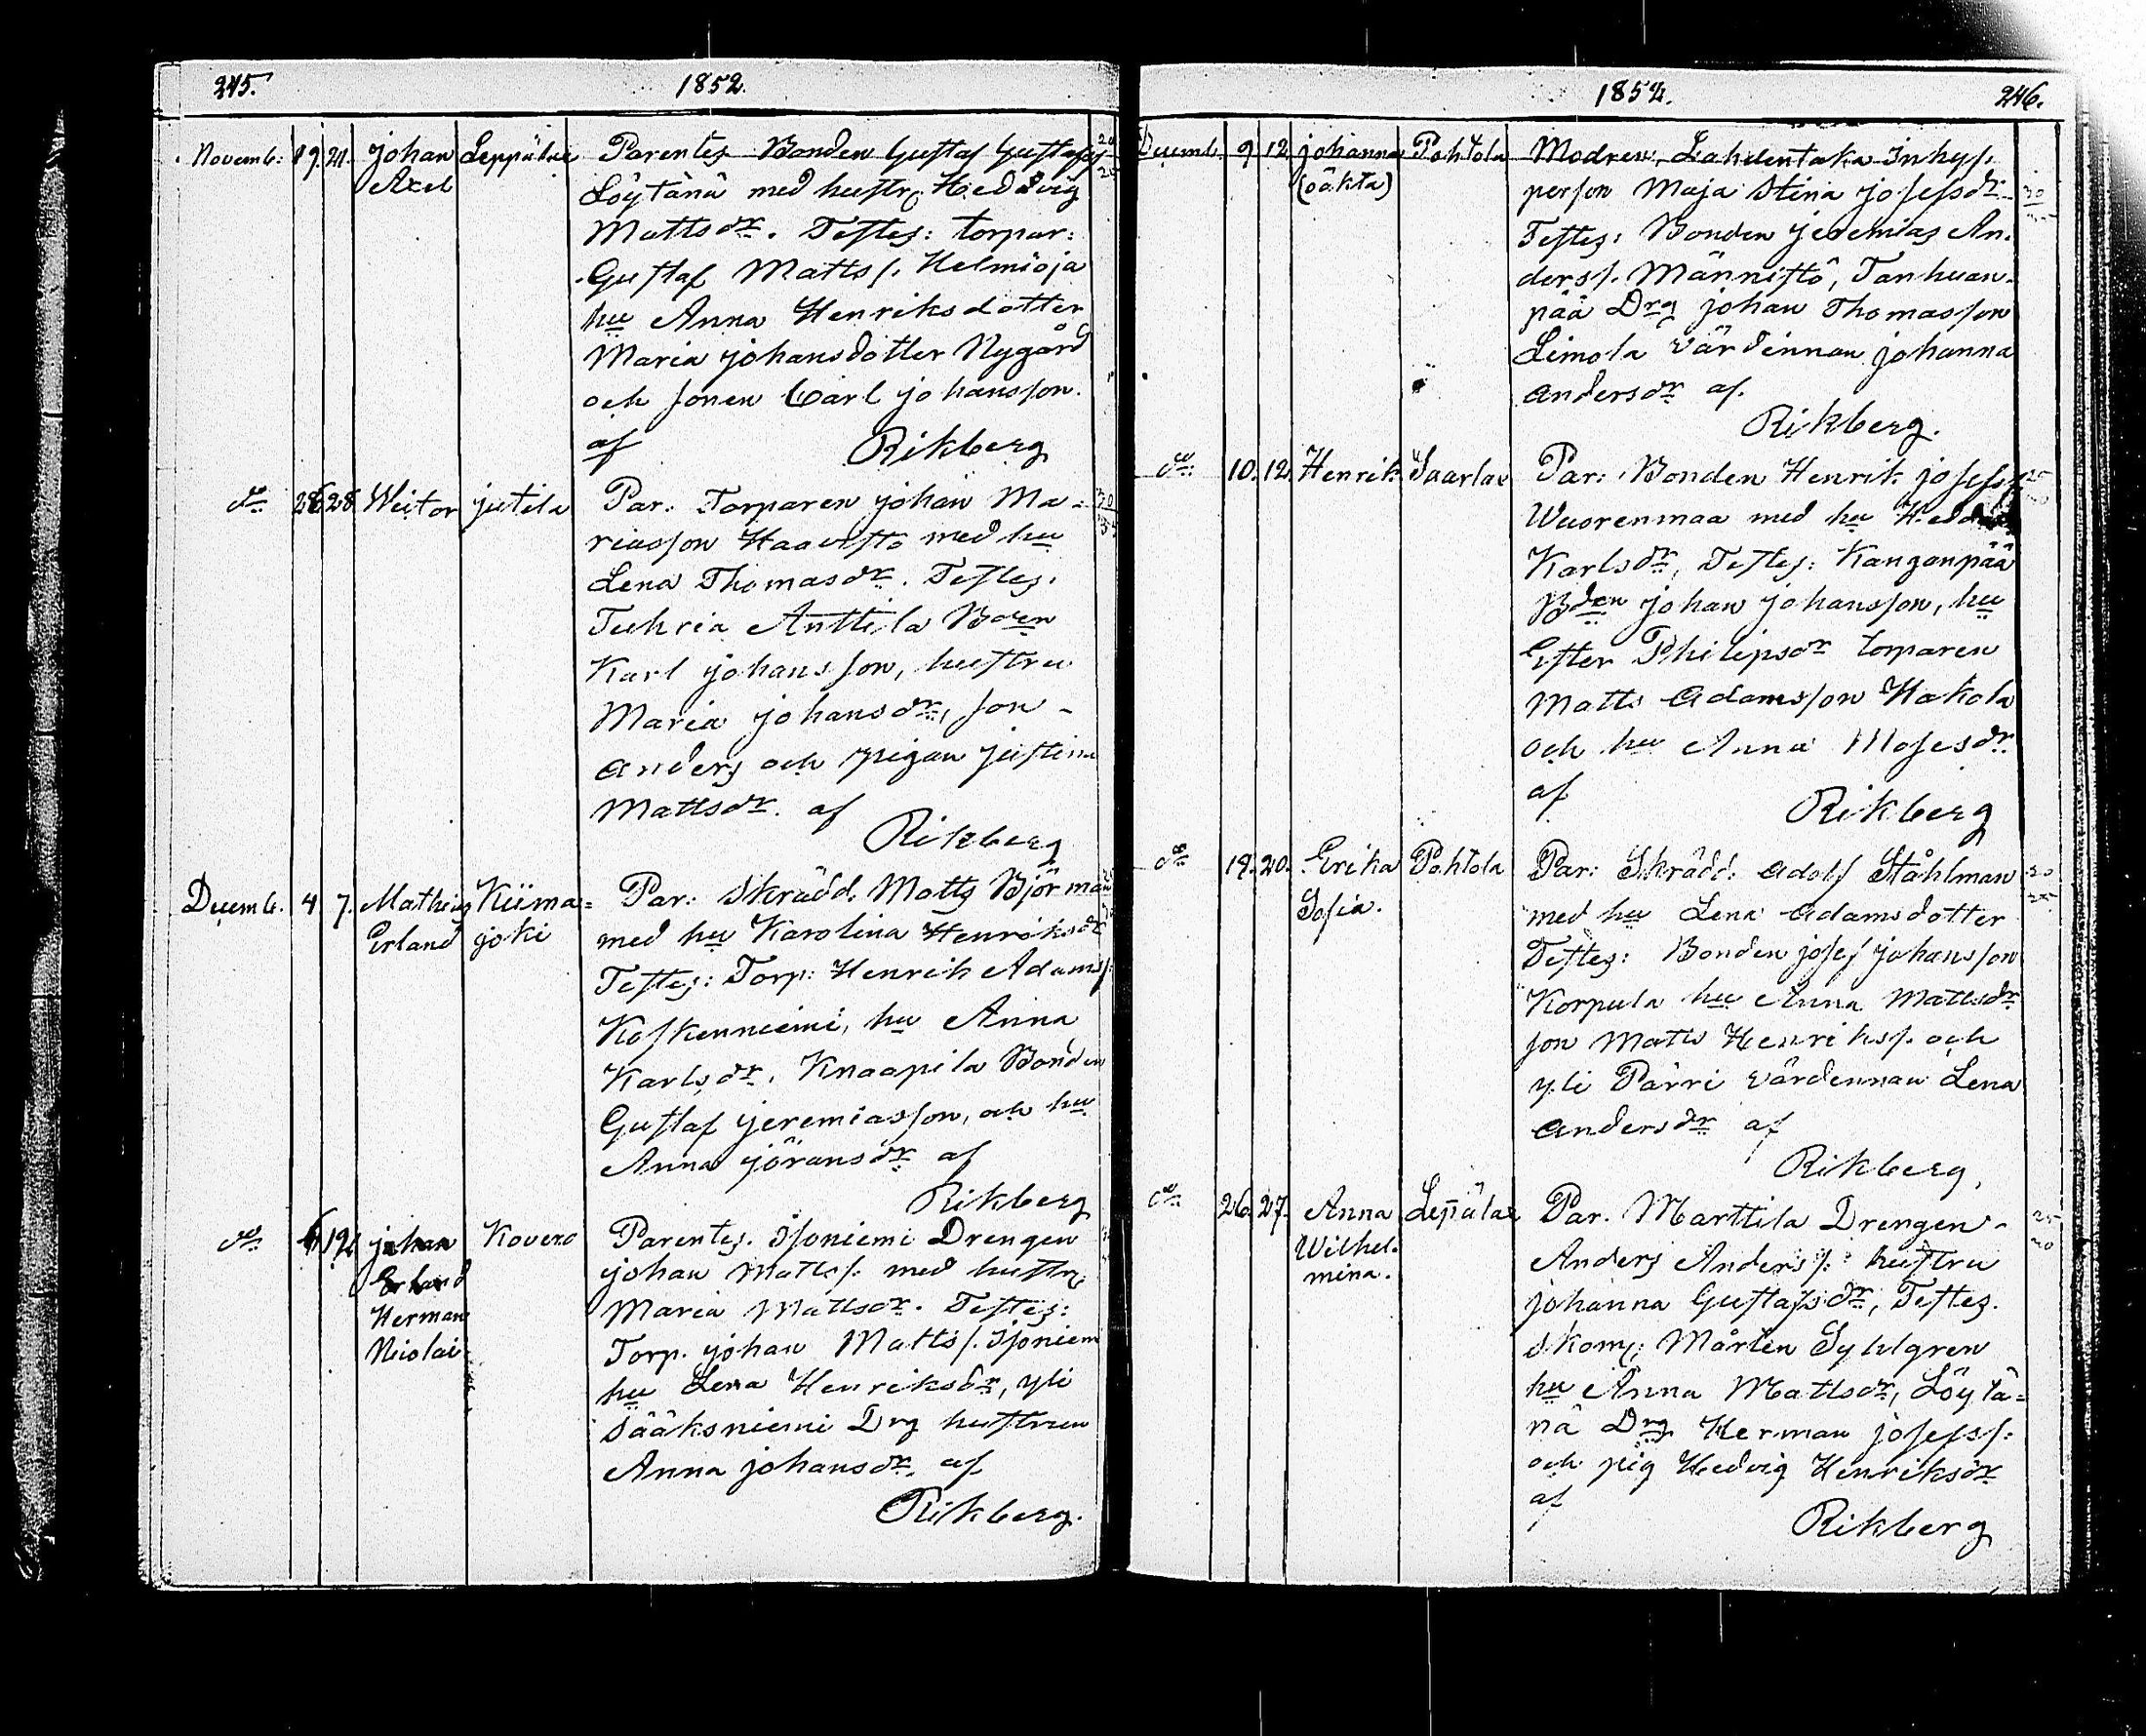 245. 1852.
Novemb: 19. 21. Johan Leppälax Parentes Bonden Gustaf Gustafss
Axel Löytänä med hustr Hedvig
Mattsdr. Testes: torpar:
Gustaf Matts/. Helmioja
hu Anna Henriksdotter
Maria Johansdotter Nygård
och sonen Carl Johansson.
af Rikberg
do 26 28 Weitor Jutila Par. Torparen Johan Ma-
riasson Haavisto med hu
Lena Thomasdr. Testes.
Tuhria Anttila Boen
Karl Johansson, hustru
Maria Johansdr, son-
Anders och pigan Justina
Mattsdr. af
Rikberg
Decemb. 4 7. Mathias Kiima= Par: Skrädd. Matts Björman
Erland joki med hu Karolina Henriksdr
Testes: Torp: Henrik Adams/.
Koskenniemi, hu Anna
Karlsdr, Knaapila Bonden
Gustaf Jeremiasson, och hu
Anna Göransdr af
Rikberg
do 12 Johan Kovero Parentes. Isoniemi Drengen
Erland Johan Matts/. med hustr.
Herman Maria Mattsdr. Testes:
Nicolai Torp. Johan Matts/. Isoniem
hu Lena Henriksdr, yli
Sääksniemi Drg hustrun
Anna Johansdr. af
Rikberg.
1852. 246.
Decemb. 9 12 Johanna Pohtola Modren, Lahdentaka Inhys.
(oäkta) person Maja Stina Josefsdr
Testes: Bonden Jeremias An-
ders/. Männistö, Tanhuan-
pää Drg Johan Thomasson
Limola värdinnan Johanna
Andersdr af.
Rikberg.
do 10. 12. Henrik Saarlax Par: Bonden Henrik Josefs/
Wuorenmaa med hu
Karlsdr, Testes: Kanganpää
Bden Johan Johansson, hu
Ester Philipsdr torparen
Matts Adamsson Hakola
och hu Anna Mosesdr
af
Rikberg
do 18. 20. Erika Pohtola Par: Skrädd. Adolf Ståhlman
Sofia. med hu Lena Adamsdotter
Testes: Bonden Josef Johansson
Korpula hu Anna Mattsdr
son Matts Henriks/. och
yli Pärri värdennan Lena
Andersdr af
Rikberg,
do 26. 27. Anna Lepälax Par. Marttila Drengen-
Wilhel- Anders Anders/. hustru
mina. Johanna Gustafsdr, Testes.
Skom: Mårten Sylvgren
hu Anna Mattsdr, Löytä=
nä Drg. Herman Josefs/.
och pig Hedvig Henriksdr
af
Rikberg